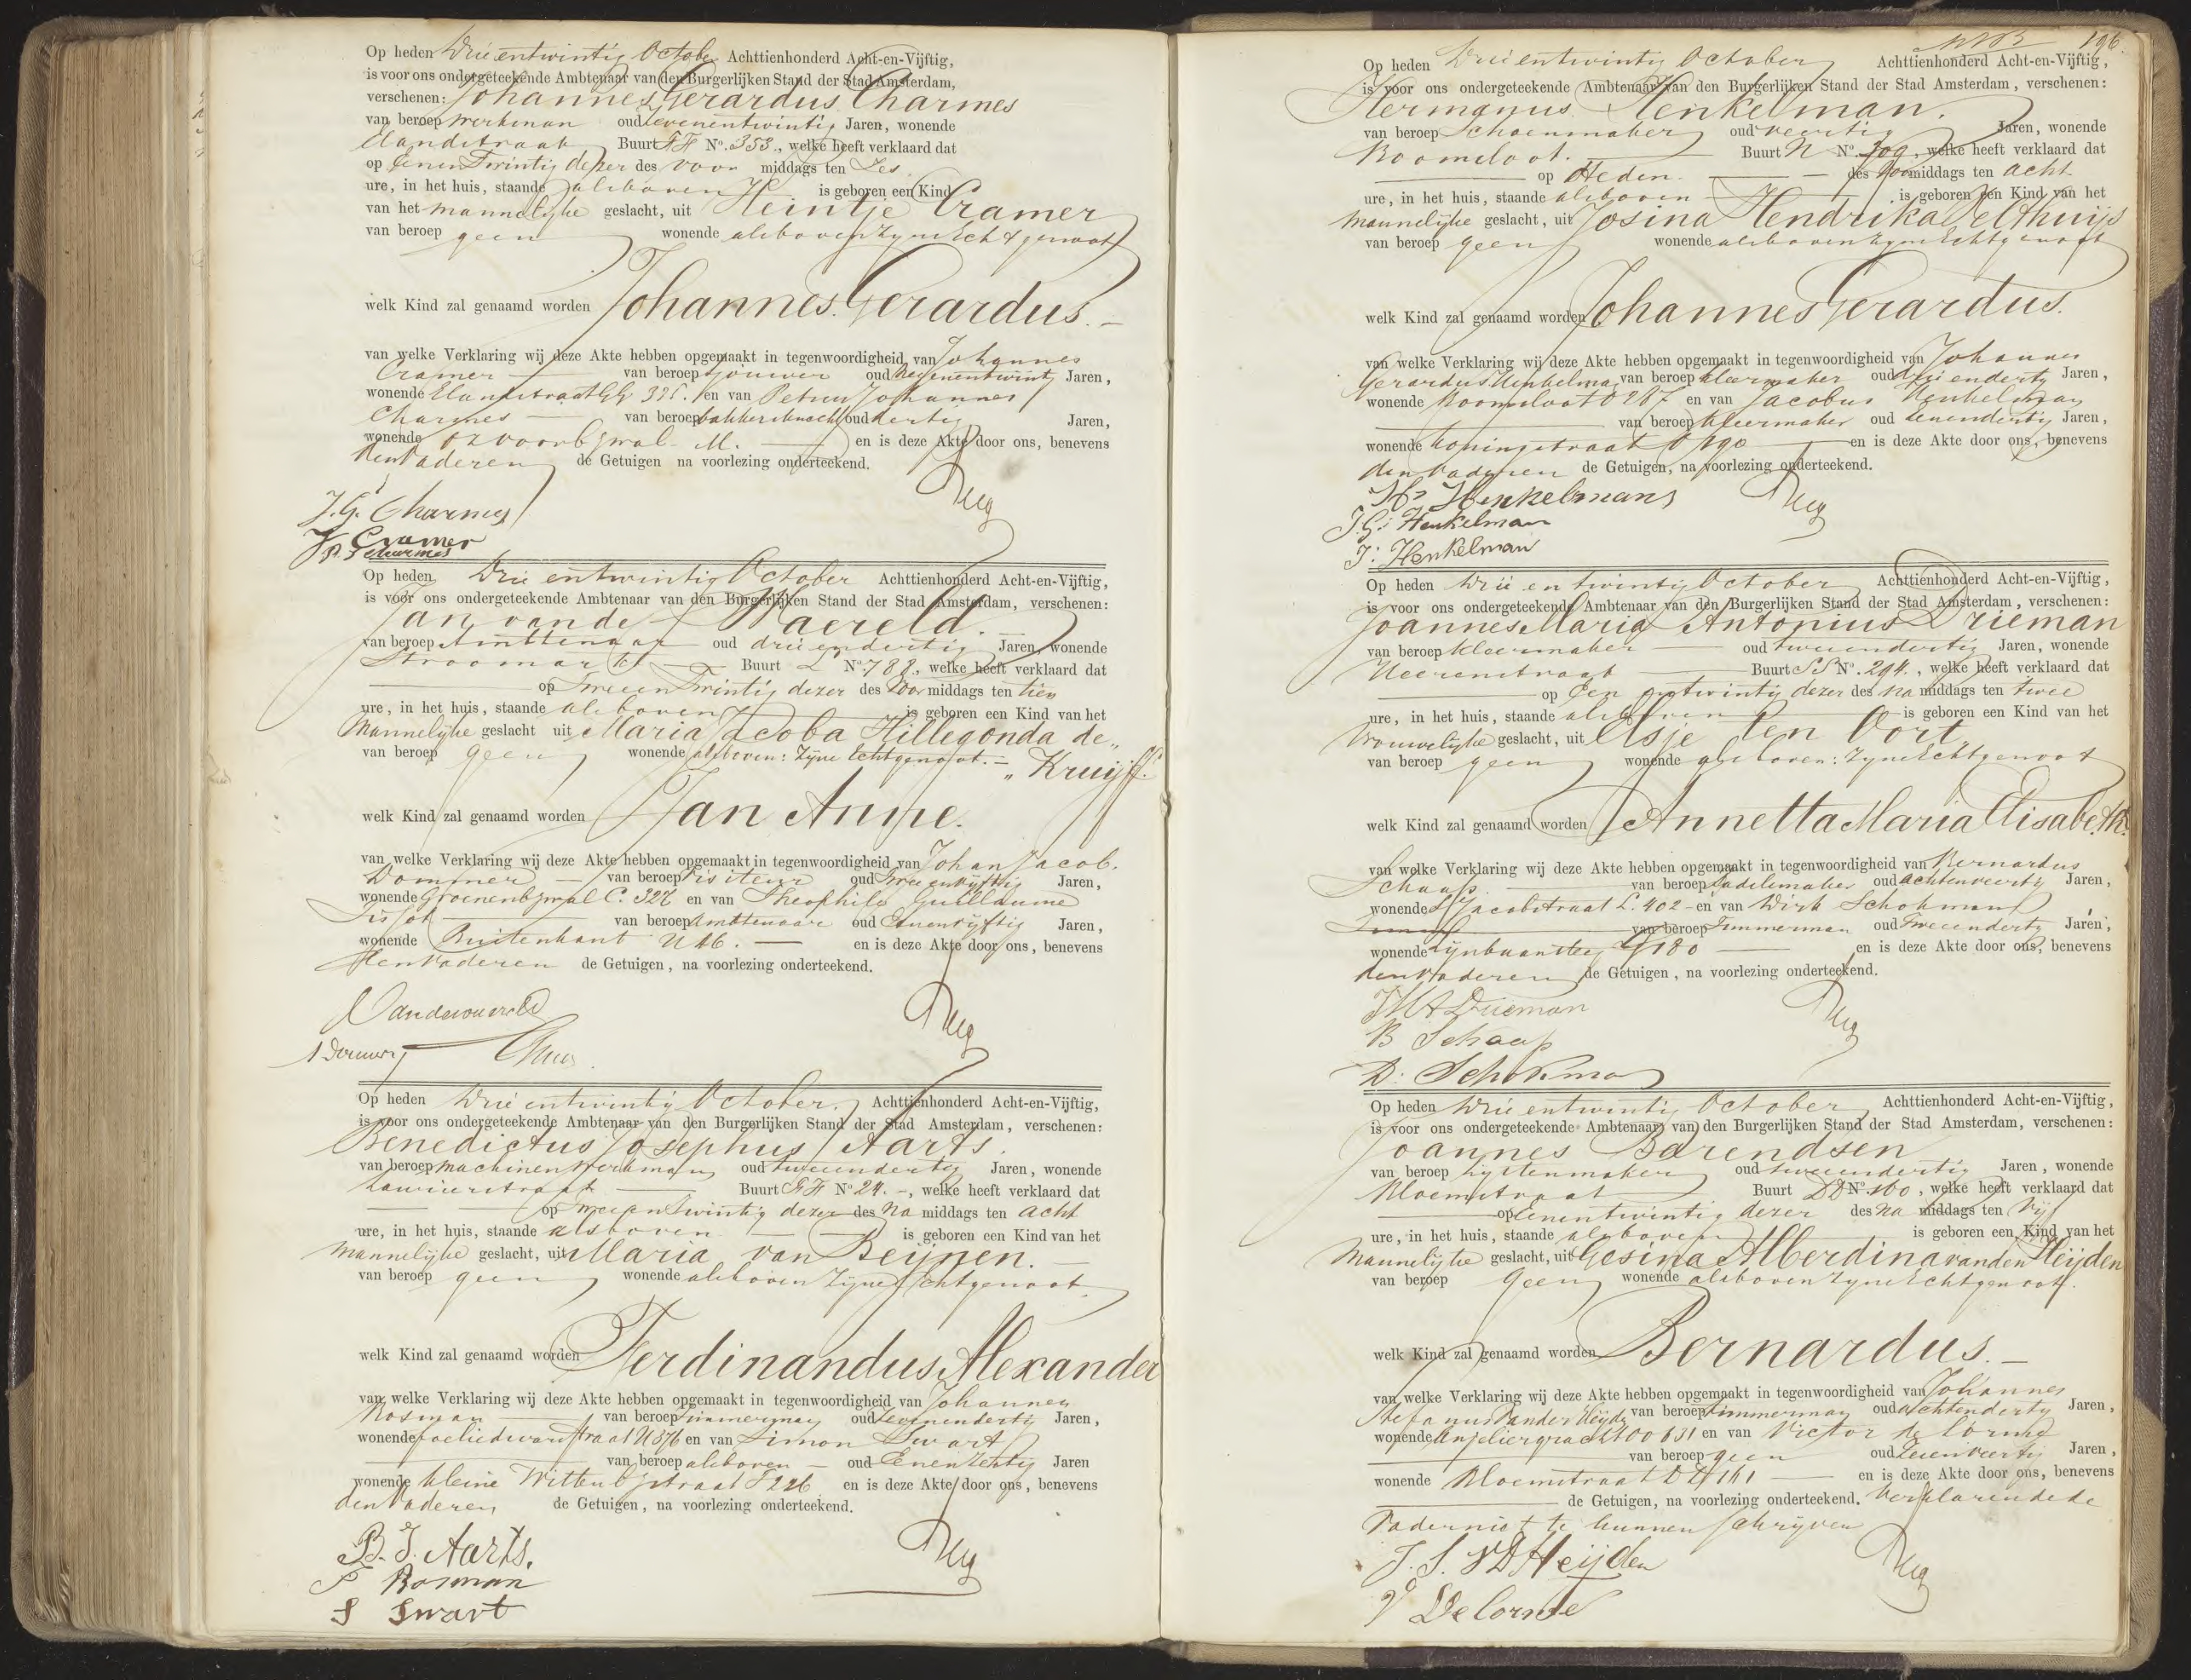 Op heden Drieentwintig October Achttienhonderd Acht-en-Vijftig,
is voor ons ondergeteekende Ambtenaar van den Burgerlijken Stand der Stad Amsterdam,
verschenen: Johannes Gerardus Charmes
van beroep werkman oud zevenentwintig Jaren, wonende
Elandstraat Buurt FF No. 353, welke heeft verklaard dat
op Eenentwintig dezer des voor middags ten Zes
ure, in het huis, staande alsboven is geboren een Kind
van het mannelijke geslacht, uit Heintje Cramer
van beroep geen wonende alsboven zyne Echtgenoot
welk Kind zal genaamd worden Johannes Gerardus. —
van welke Verklaring wij deze Akte hebben opgemaakt in tegenwoordigheid van Johannes
Cramer van beroep oud negenentwintig Jaren,
wonende Elandstraat en van Petrus Johannes
Charmes van beroep bakkersknecht oud dertig Jaren,
wonende OZ voorbgwal M. en is deze Akte door ons, benevens
den Vader en de Getuigen na voorlezing onderteekend.
J. G. Charmes
J. Cramer
P. J. Charmes
Op heden Drie entwintig October Achttienhonderd Acht-en-Vijftig,
is voor ons ondergeteekende Ambtenaar van den Burgerlijken Stand der Stad Amsterdam, verschenen:
Jan van de Waereld.
van beroep Amttenaar oud drieendertig Jaren, wonende
Stroomarkt Buurt L No. 788, welke heeft verklaard dat
op Tweeentwintig dezer des Voor middags ten tien
ure, in het huis, staande alsboven is geboren een Kind van het
Mannelijke geslacht uit Maria Jacoba Hillegonda de „
van beroep geen wonende alsboven: Zijne Echtgenoot. — „ Kruijff.
welk Kind zal genaamd worden Jan Anne.
van welke Verklaring wij deze Akte hebben opgemaakt in tegenwoordigheid van Johan Jacob
Dommer van beroep Visiteur oud Tweeenvijftig Jaren,
wonende Groenenbgwal C. 326 en van Theophile Guillaume
Tissot van beroep Amttenaar oud Eenenvijftig Jaren,
wonende Buitenkant U 16. en is deze Akte door ons, benevens
den Vader en de Getuigen, na voorlezing onderteekend.
Vandewaereld
Op heden Drie entwintig October. Achttienhonderd Acht-en-Vijftig,
is voor ons ondergeteekende Ambtenaar van den Burgerlijken Stand der Stad Amsterdam, verschenen:
Benedictus Josephus Aarts.
van beroep machinenwerkman oud tweeendertig Jaren, wonende
Laurierstraat Buurt FF No 24. -, welke heeft verklaard dat
op Tweeentwintig dezer des Na middags ten acht
ure, in het huis, staande alsboven is geboren een Kind van het
Mannelijke geslacht, uit Maria van Beijnen. —
van beroep geen wonende alsboven Zijne Echtgenoot.
welk Kind zal genaamd worden Ferdinandus Alexander
van welke Verklaring wij deze Akte hebben opgemaakt in tegenwoordigheid van Johannes
Rosman van beroep timmerman oud Zevenendertig Jaren,
wonende foeliedwarsstraat U 576 en van Simon Swart
van beroep alsboven oud Eenenzestig Jaren
wonende Kleine Wittenbgstraat S 226 en is deze Akte door ons, benevens
den Vader en de Getuigen, na voorlezing onderteekend.
B. J. Aarts.
Rosman
S Swart
196.
Op heden Drieentwintig October Achttienhonderd Acht-en-Vijftig,
is voor ons ondergeteekende Ambtenaar van den Burgerlijken Stand der Stad Amsterdam, verschenen:
Hermanus Henkelman.
van beroep Schoenmaker oud veertig Jaren, wonende
Boomsloot. Buurt N No. 309, welke heeft verklaard dat
op Heden. des Voormiddags ten acht
ure, in het huis, staande alsboven is geboren een Kind van het
Mannelijke geslacht, uit Josina Hendrika Velthuijs
van beroep geen wonende alsboven zyne Echtgenoot
welk Kind zal genaamd worden Johannes Gerardus.
van welke Verklaring wij deze Akte hebben opgemaakt in tegenwoordigheid van Johannes
Gerardus Henkelman van beroep kleermaker oud drieendertig Jaren,
wonende Boomsloot O 287 en van Jacobus Henkelman
van beroep kleermaker oud eenendertig Jaren,
wonende Koningstraat O 190 en is deze Akte door ons, benevens
den Vader en de Getuigen, na voorlezing onderteekend.
Hs Henkelmans
J. G: Henkelman
J: Henkelman
Op heden Drie en twintig October Achttienhonderd Acht-en-Vijftig,
is voor ons ondergeteekende Ambtenaar van den Burgerlijken Stand der Stad Amsterdam, verschenen:
Joannes Maria Antonius Drieman
van beroep kleermaker oud tweeendertig Jaren, wonende
Heerenstraat Buurt SS No. 294., welke heeft verklaard dat
op Een entwintig dezer des Na middags ten twee
ure, in het huis, staande alsboven is geboren een Kind van het
Vrouwelijke geslacht, uit Elsje ten Oort
van beroep geen wonende alsboven: zyne Echtgenoot
welk Kind zal genaamd worden Annetta Maria Elisabeth.
van welke Verklaring wij deze Akte hebben opgemaakt in tegenwoordigheid van Bernardus
Schaap. van beroep zadelmaker oud achtenveertig Jaren,
wonende St Jacobstraat L. 402 - en van Dirk Schokman
van beroep Timmerman oud Tweeendertig Jaren,
wonende Lijnbaansteeg G 180 en is deze Akte door ons, benevens
den Vader en de Getuigen, na voorlezing onderteekend.
JMA Drieman
B Schaap
D: Schokman
Op heden Drie entwintig October Achttienhonderd Acht-en-Vijftig,
is voor ons ondergeteekende Ambtenaar van den Burgerlijken Stand der Stad Amsterdam, verschenen:
Joannes Barendsen
van beroep Lystenmaker oud tweeendertig Jaren, wonende
Bloemstraat Buurt DD No. 160, welke heeft verklaard dat
op Eenentwintig dezer des Na middags ten Vijf
ure, in het huis, staande alsboven is geboren een Kind van het
Mannelijke geslacht, uit Gesina Alberdina vanden Heijden
van beroep Geen wonende alsboven zyne Echtgenoot.
welk Kind zal genaamd worden Bernardus. —
van welke Verklaring wij deze Akte hebben opgemaakt in tegenwoordigheid van Johannes
Stefanus Vander Heijde van beroep timmerman oud achtendertig Jaren,
wonende Anjeliergracht OO 631 en van Victor de Lorme
van beroep geen oud Jaren,
wonende Bloemstraat DD 161 en is deze Akte door ons, benevens
de Getuigen, na voorlezing onderteekend. Verklarende de
Vader niet te kunnen schrijven
J. S. VD Heijden
V DeLorme